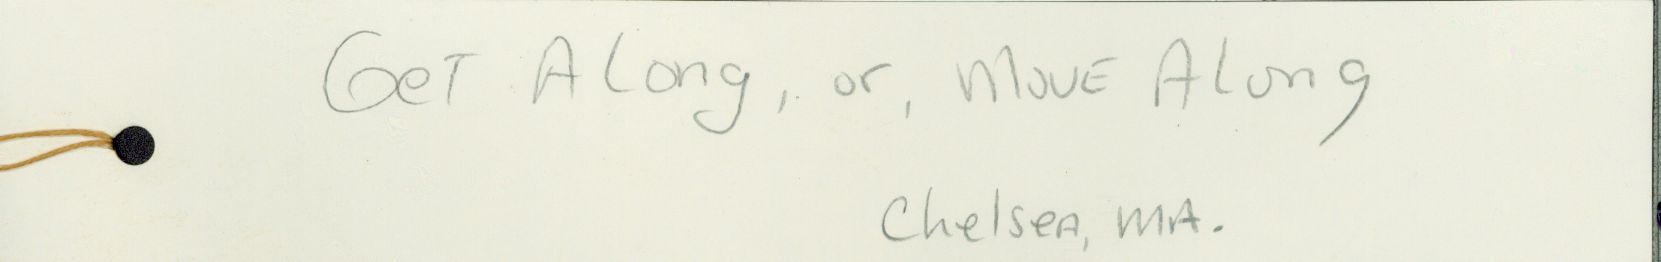 Get Along, or, Move Along
Chelsea, MA.